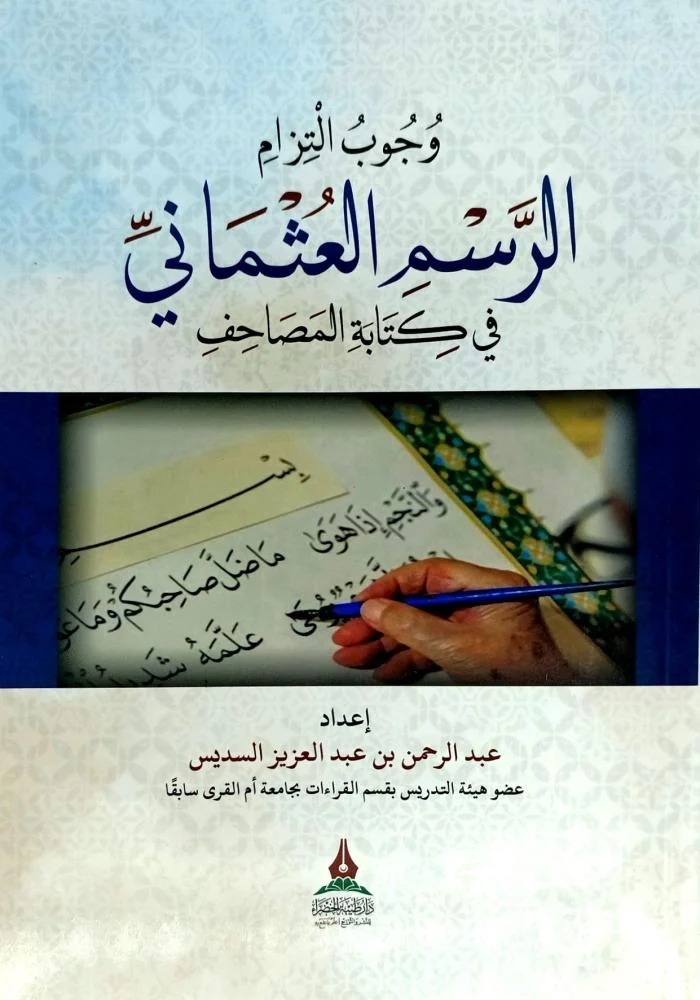 وُجُوبُ الْتِزَامِ
الرَّسْمِ العُثْمَانِيِّ
في كِتَابَةِ المَصَاحِفِ
بِسْ
وَالنَّجْمِ إِذَا هَوَىٰ
مَا ضَلَّ صَاحِبُكُمْ وَمَا غَوَ
عَلَّمَهُ شَدِيدُ
إعداد
عبد الرحمن بن عبد العزيز السديس
عضو هيئة التدريس بقسم القراءات بجامعة أم القرى سابقًا
دار طيبة الخضراء